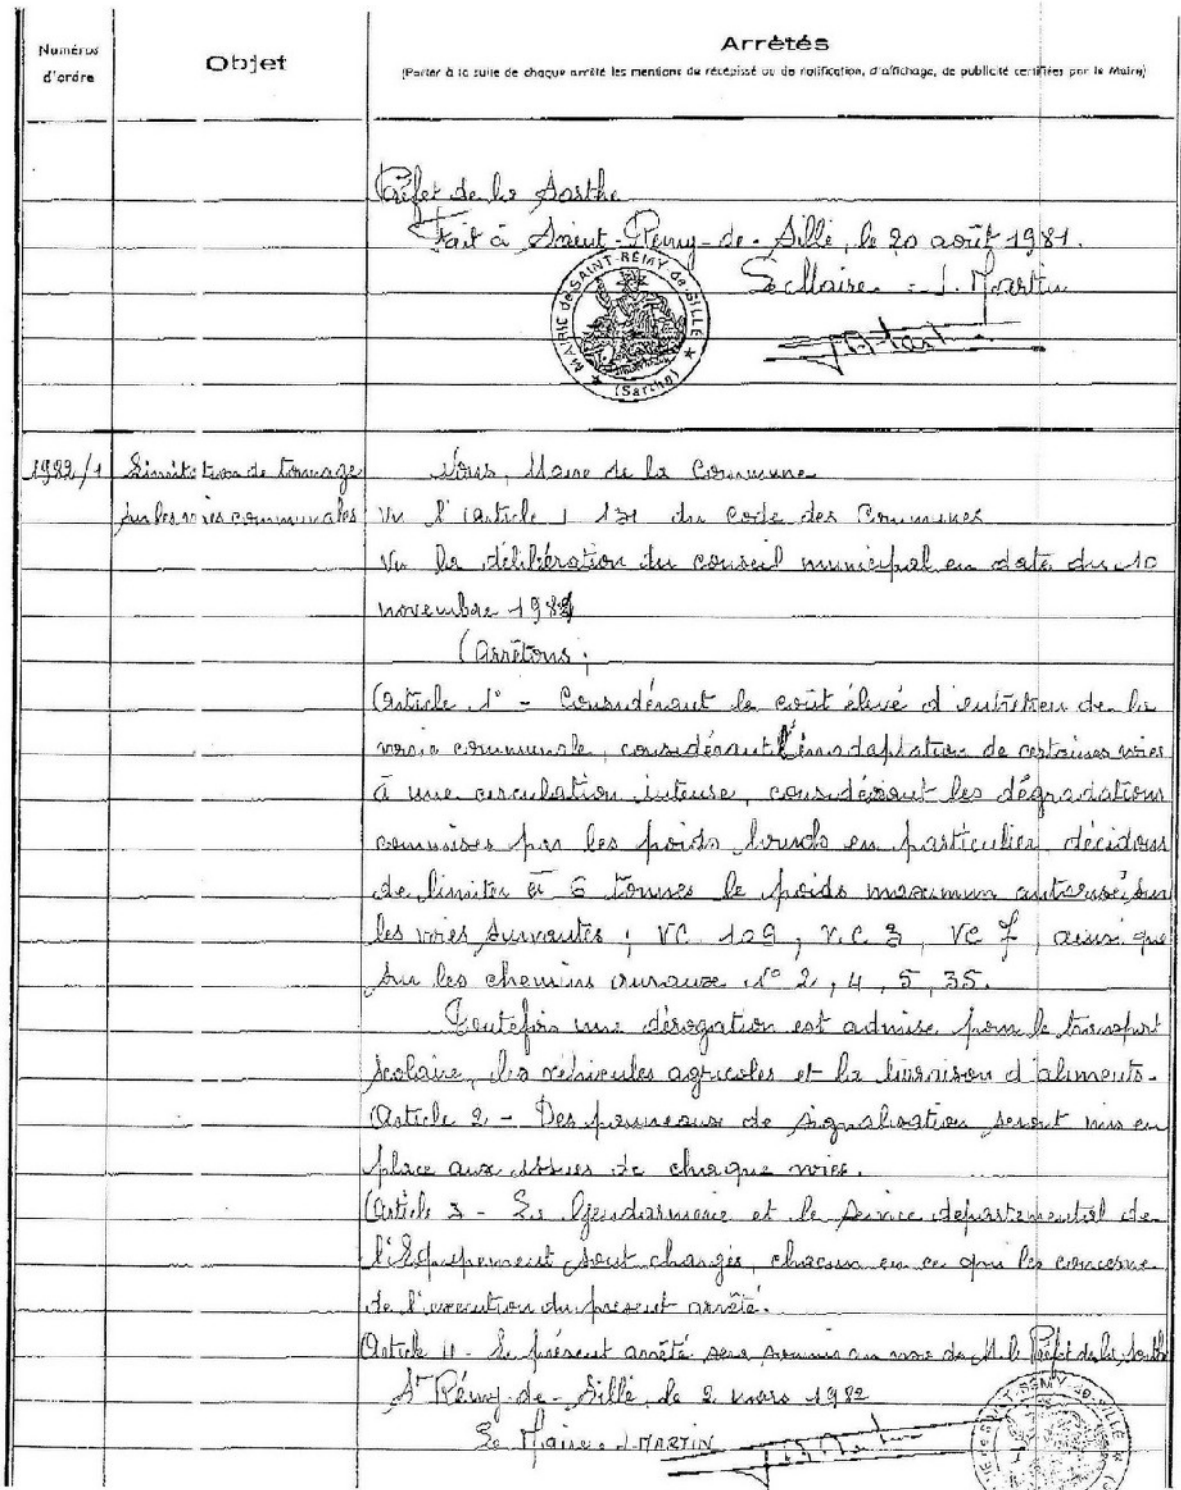 Numéros
d'ordre
Objet
Arrêtés
(Porter à la suite de chaque arrêté les mentions de récépissé ou de notification, d'affichage, de publicité certifiées par le Maire)
Préfet de la Sarthe
Fait à Saint-Rémy-de-Sillé, le 20 août 1981.
Le Maire : J. Martin
MAIRIE de SAINT-RÉMY-de-SILLÉ
(Sarthe)
1982/1
Limitation de tonnage
sur les voies communales
Nous, Maire de la Commune
Vu l'article L 131 du Code des Communes
Vu la délibération du conseil municipal en date du 10
novembre 1981
Arrêtons :
Article 1° - Considérant le coût élevé d'entretien de la
voirie communale, considérant l'inadaptation de certaines voies
à une circulation intense, considérant les dégradations
commises par les poids lourds en particulier, décidons
de limiter à 6 tonnes le poids maximum autorisé, sur
les voies suivantes : VC 109, V.C 3, VC 7, ainsi que
sur les chemins ruraux N° 2, 4, 5, 35.
Toutefois une dérogation est admise pour le transport
scolaire, les véhicules agricoles et la livraison d'aliments.
Article 2 - Des panneaux de signalisation seront mis en
place aux issues de chaque voies.
Article 3 - La Gendarmerie et le Service départemental de
l'Equipement sont chargés, chacun en ce qui les concerne
de l'execution du présent arrêté.
Article 4 - Le présent arrêté sera soumis au visa de M. le Préfet de la Sarthe
St Rémy-de-Sillé, le 2 mars 1982
Le Maire. J. MARTIN